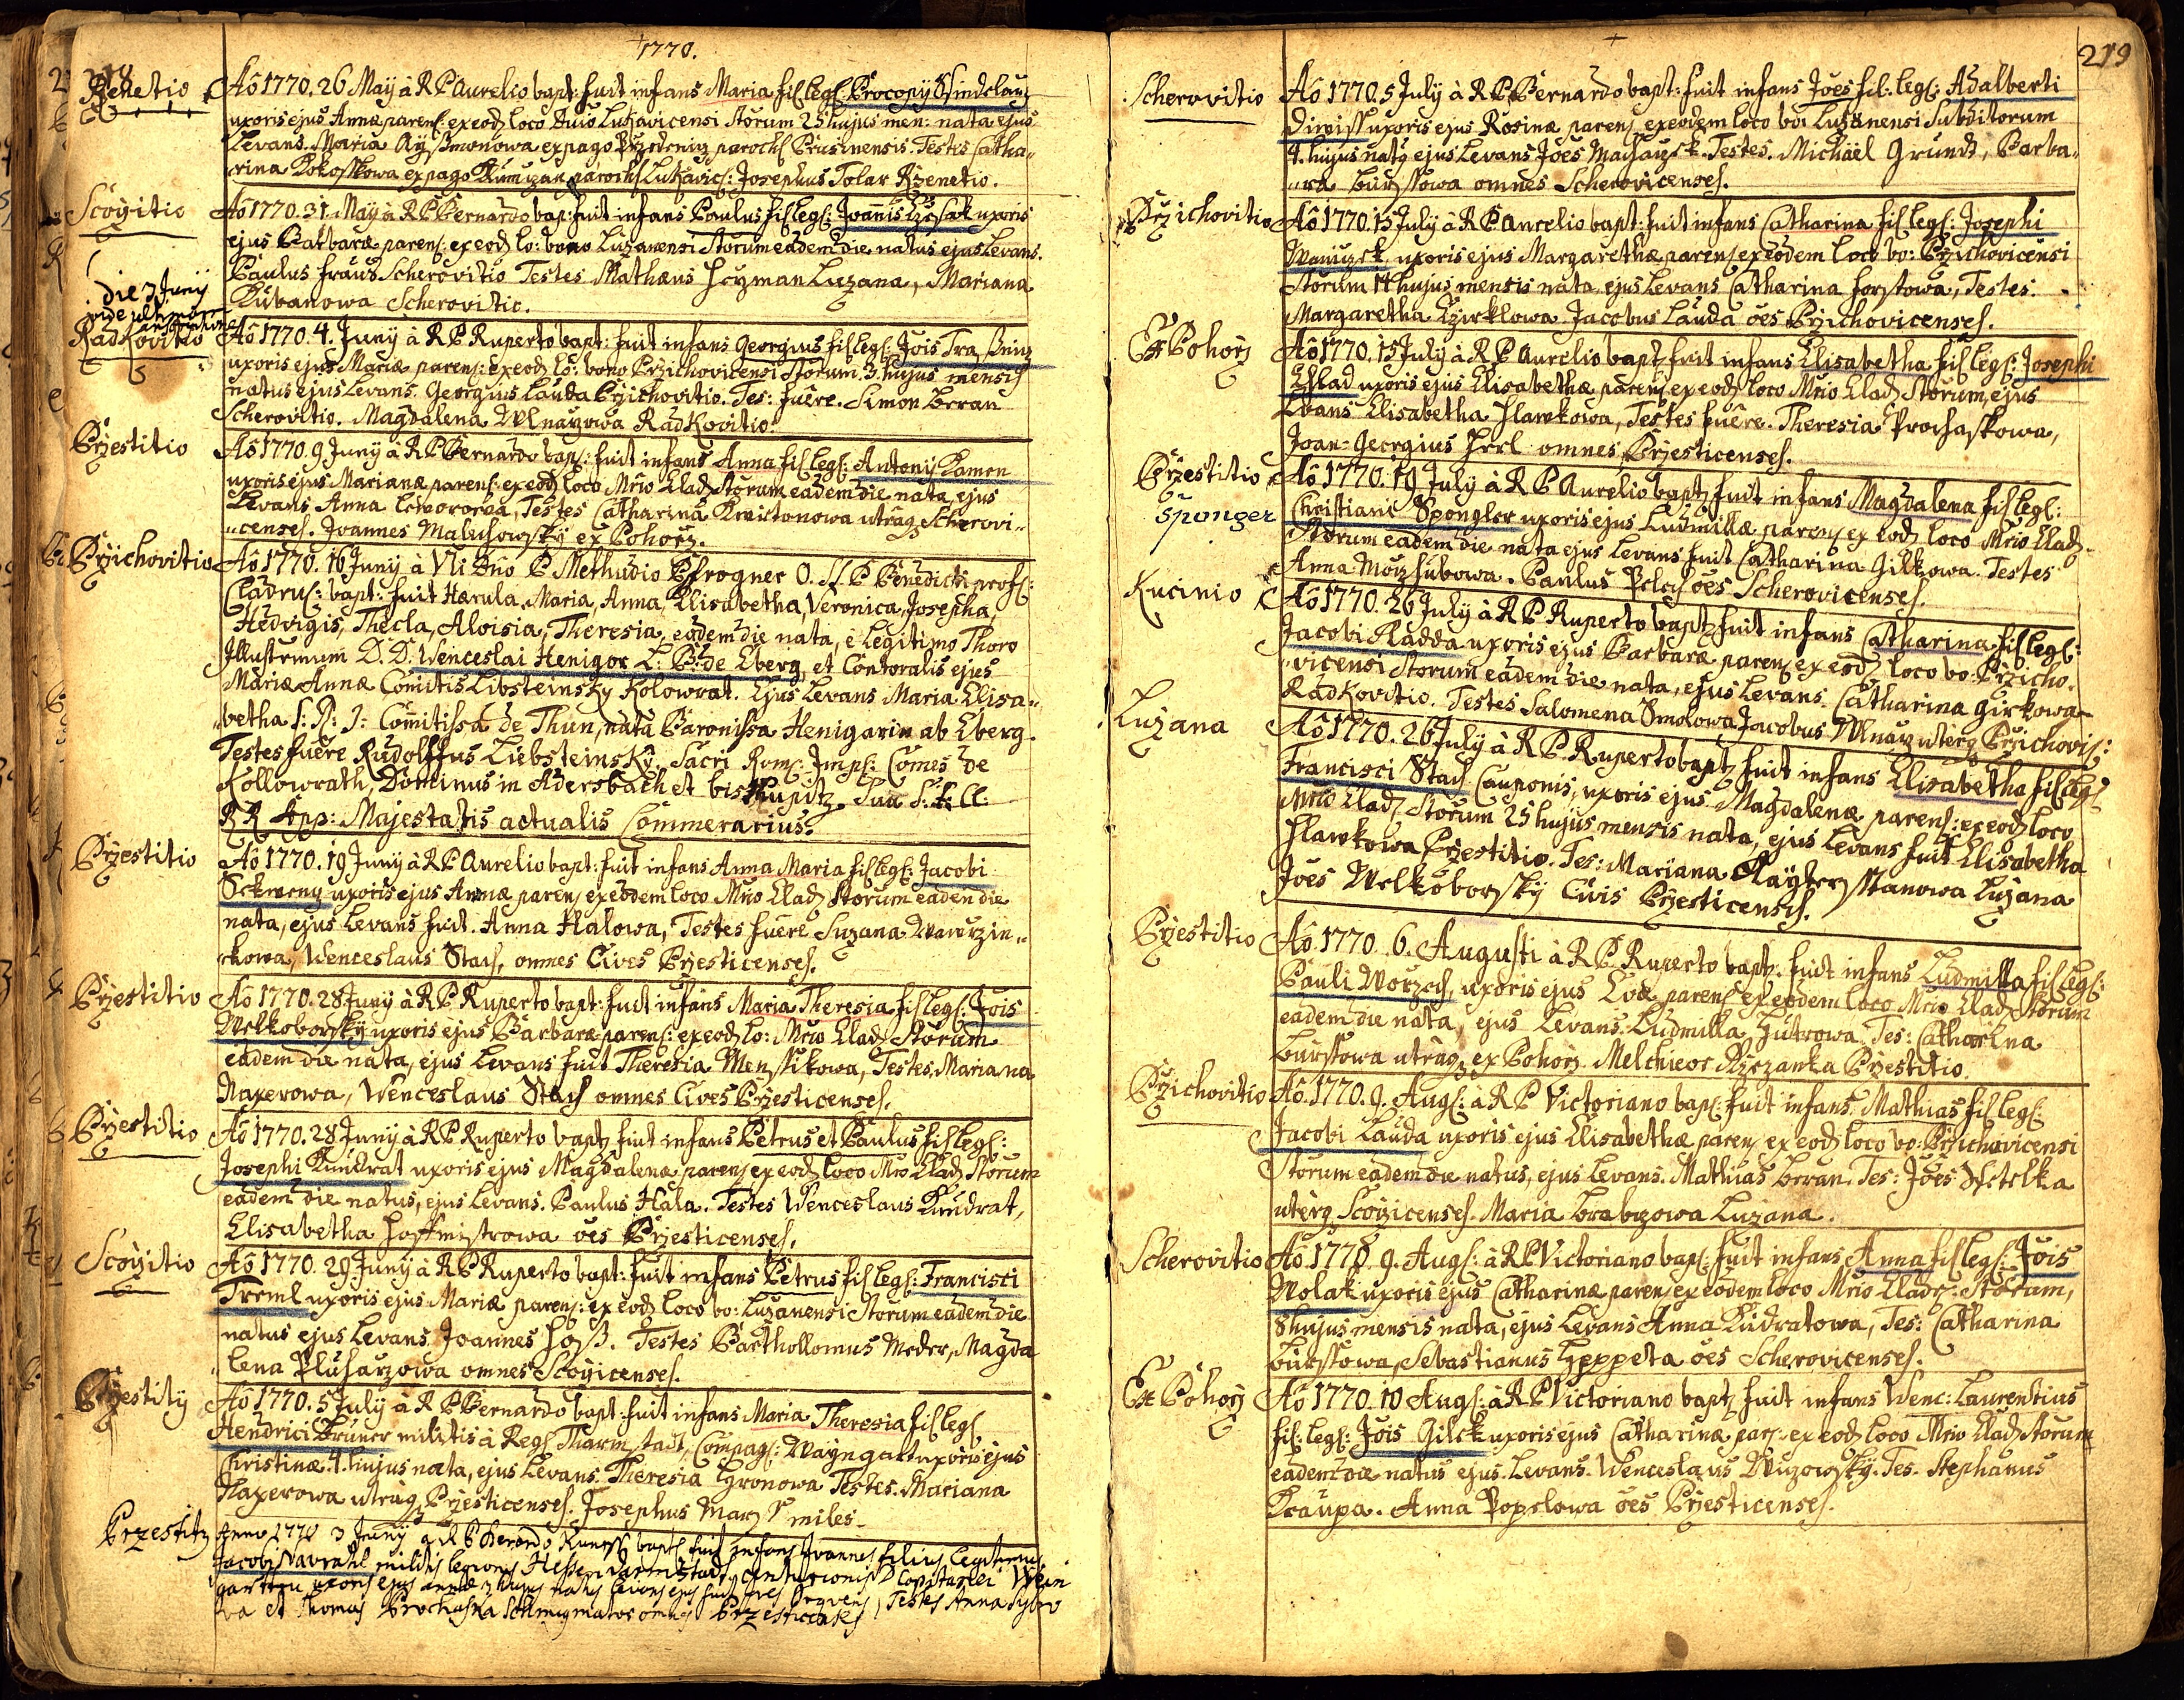 1770.
218
Rzenetio
Ao 1770. 26 Maÿ à R P Aurelio bapt: fuit infans Maria fil legs: Procopÿ
uxoris ejus Annæ parens: ex eodz loco Dnio Lukavicensi Storum 25 hujus men: nata ejus
Levans. Maria ex pago parochs Prusinensis. Testis Catha„
„rina Kokosskowa ex pago parochs Lukavics: Josephus Tolar Rzenetio.
Scoÿitio
Ao 1770. 31. Maÿ à R P Bernardo bap: fuit infans Paulus fil legs: Joannis uxoris
ejus Barbaræ parens: ex eodz lo: bono Luzanensi Storum eadem die natus ejus Levans.
Paulus Fraus Scherovitio Testes Mathæus Heyman Luzana, Mariana
Kubanowa Scherovitio.
die 3 Junÿ
vide ultimam
Radkovitio
Ao 1770. 4. Junÿ à R P Ruperto bapt: fuit infans Georgius fil legs: Jois
uxoris ejus Mariæ parens: ex eodz lo: bono Przichovicensi Storum. 3. hujus mensis
natus ejus Levans. Georgius Lauda Przichovitio. Tes: fuêre. Simon Beran
Scherovitio. Magdalena Radkovitio.
Przestitio
Ao 1770. 9 Junÿ à R P Bernardo bap: fuit infans Anna fil legs: Antonÿ Kamen
uxoris ejus Marianæ parens: ex eodz loco Mrio Cladz Storum eadem die nata ejus
Levans Anna Testes Catharina Kwittonowa utraqz Scherovi„
„censes. Joannes Maluchowskÿ ex Pohorz.
Przichovitio
Ao 1770. 16 Junÿ à Vli Dno P Methudio Pfrogner O. S. P Benedicti profs:
Cladrus: bapt: fuit Herula, Maria, Anna, Elisabetha, Veronica, Josepha,
Hedvigis, Thecla, Aloisia, Theresia, eodem die nata, è Legitimo Thoro
Illustrmum D. D. Wenceslai Henigor L: B: de Eberg, et Contoralis ejus
Mariæ Annæ Comitis Libsteinsky Kolowrat. Ejus Levans Maria Elisa„
„betha S: R: I: Comitissa de Thun, nata Baronissa Henigarin ab Eberg.
Testes fuêre Rudolffus Liebsteinskÿ, Sacri Roms: Imps: Comes de
Kollowrath, Dominus in Adersbach et bisthupitz. Suæ S: C:
R R App: Majestatis actualis Commerarius.
Przestitio
Ao 1770. 19 Junÿ à R P Aurelio bapt: fuit infans Anna Maria fil legs: Jacobi
uxoris ejus Annæ parens ex eodem loco Mrio Cladz Storum eadem die
nata, ejus Levans fuit. Anna Halowa, Testes fuêre Suzana Wawrzin„
„kowa, Wenceslaus Stach, omnes Cives Przesticenses.
Przestitio
Ao 1770. 28 Junÿ à R P Ruperto bapt: fuit infans Maria Theresia fil legs: Jois
Welkoborskÿ uxoris ejus Barbaræ parens: ex eodz lo: Mrio Cladz Storum
eadem die nata, ejus Levans fuit Theresia Menssikowa, Testes. Mariana
Naxerowa, Wenceslaus Stach omnes Cives Przesticenses.
Przestitio
Ao 1770. 28 Junÿ à R P Ruperto bapt fuit infans Petrus et Paulus fil legs:
Josephi Kundrat uxoris ejus Magdalenæ parens ex eodz loco Mrio Cladz Storum
eadem die natus, ejus Levans. Paulus Hala. Testes Wenceslaus Kundrat,
Elisabetha Hoffmistrowa oes Przesticenses.
Scoÿitio
Ao 1770. 29 Junÿ à R P Ruperto bapt: fuit infans Petrus fil legs: Francisci
Treml uxoris ejus Mariæ parens: ex eodz loco bo: Luzanensi Storum eadem die
natus ejus Levans. Joannes Hoss. Testes Barthollomus Meder, Magda
„lena Pluharzowa omnes Scoÿicenses.
Przestitÿ
Ao 1770. 5 Julÿ à R P Bernardo bapt: fuit infans Maria Theresia fil legs
Hendrici Bruner militis à Regs Tharmstadt, Compags: Wayngart uxoris ejus
Christinæ. 4. hujus nata, ejus Levans. Theresia Testes. Mariana
Naxerowa utraqz Przesticenses. Josephus miles.
Przestitz
Anno 1770 3 Junÿ a R P Berardo bapts fuit infans Joannes filius legitimus
Jacobi Navratil militis legionis Hessen Darmstadt Capitanei Wein
gartten uxoris ejus Annæ 3 hujus natus levans ejus fuit Testes Anna
va et Thomas Prochaska omnes Przesticenses
219
Scherovitio
Ao 1770. 5 Julÿ à R P Bernardo bapt: fuit infans Joes fil: legs: Adalberti
Diwiss uxoris ejus Rosinæ parens ex eodem loco boi Luzanensi Subditorum
4. hujus natg ejus Levans Joes Testes. Michäel Grundt, Barba„
„ra Burssowa omnes Scherovicenses.
Przichovitio
Ao 1770. 15 Julÿ à R P Aurelio bapt: fuit infans Catharina fil legs: Josephi
uxoris ejus Margarethæ parens ex eodem loco bo: Przichovicensi
Storum 14 hujus mensis nata ejus Levans Catharina Forstowa, Testes.
Margaretha Jacobus Lauda oes Przichovicenses.
Ex Pohorz
Ao 1770. 15 Julÿ à R P Aurelio bapt fuit infans Elisabetha fil legs: Josephi
uxoris ejus Elisabethæ parens ex eodz loco Mrio Cladz Storum, ejus
Lvans Elisabetha Hawkowa, Testes fuêre. Theresia Prochaskowa,
Joan=Georgius Herl omnes Przesticenses.
Przestitio
Sponger
Ao 1770. 19 Julÿ à R P Aurelio baptz fuit infans Magdalena fil legs:
Christiani Spongler uxoris ejus Ludmillæ parens ex eodz loco Mrio Cladz
Storum eadem die nata ejus Levans fuit Catharina Gilkowa. Testes
Anna Paulus oes Scherovicenses.
Kucinio
Ao 1770. 26 Julÿ à R P Ruperto baptz fuit infans Catharina fil legs:
Jacobi Radda uxoris ejus Barbaræ parens ex eodz loco bo: Przicho„
„vicensi Storum eadem die nata, ejus Levans. Catharina Girkowa
Radkovitio. Testes Salomena Smolowa Jacobus uterqz Przichovis:
Luzana
Ao 1770. 26 Julÿ à R P Ruperto baptz fuit infans Elisabetha fil legs
Francisci Stach Cauponis, uxoris ejus Magdalenæ parens: ex eodz loco
Mrio Cladz Storum 25 hujus mensis nata, ejus Levans fuit Elisabetha
Hawkowa Przestitio. Tes: Mariana Luzana
Joes Welkoborskÿ Civis Przesticensis.
Przestitio
Ao 1770. 6. Augusti à R P Ruperto baptz. fuit infans Ludmilla fil legs:
Pauli Worzech, uxoris ejus Evæ parens ex eodem loco Mrio Cladz Storum
eadem die nata, ejus Levans. Ludmilla Tes: Catharina
Burssowa utraqz ex Pohorz. Melchieor Przestitio.
Przichovitio
Ao 1770. 9. Augs: à R P Victoriano bap: fuit infans Mathias fil legs:
Jacobi Lauda uxoris ejus Elisabethæ parens ex eodz loco bo: Przichovicensi
Storum eadem die natus, ejus Levans. Mathias Beran. Tes: Joes
uterqz Scoÿicenses. Maria Brabczowa Luzana.
Scherovitio
Ao 1770. 9. Augs: à R P Victoriano bap: fuit infans Anna fil legs: Jois
Wolak uxoris ejus Catharinæ parens ex eodem loco Mrio Cladr: Storum,
8 hujus mensis nata, ejus Levans Anna Kudratowa, Tes: Catharina
Burssowa, Sebastianus oes Scherovicenses.
Ex Pohorz
Ao 1770. 10 Augs: à R P Victoriano baptz fuit infans Wenc: Laurentius
fil: legs: Jois Gilek uxoris ejus Catharinæ pars: ex eodz loco Mrio Cladz Storum
eadem die natus ejus Levans. Wenceslaus Tes. Stephanus
Kraupa. Anna Popelowa oes Przesticenses.